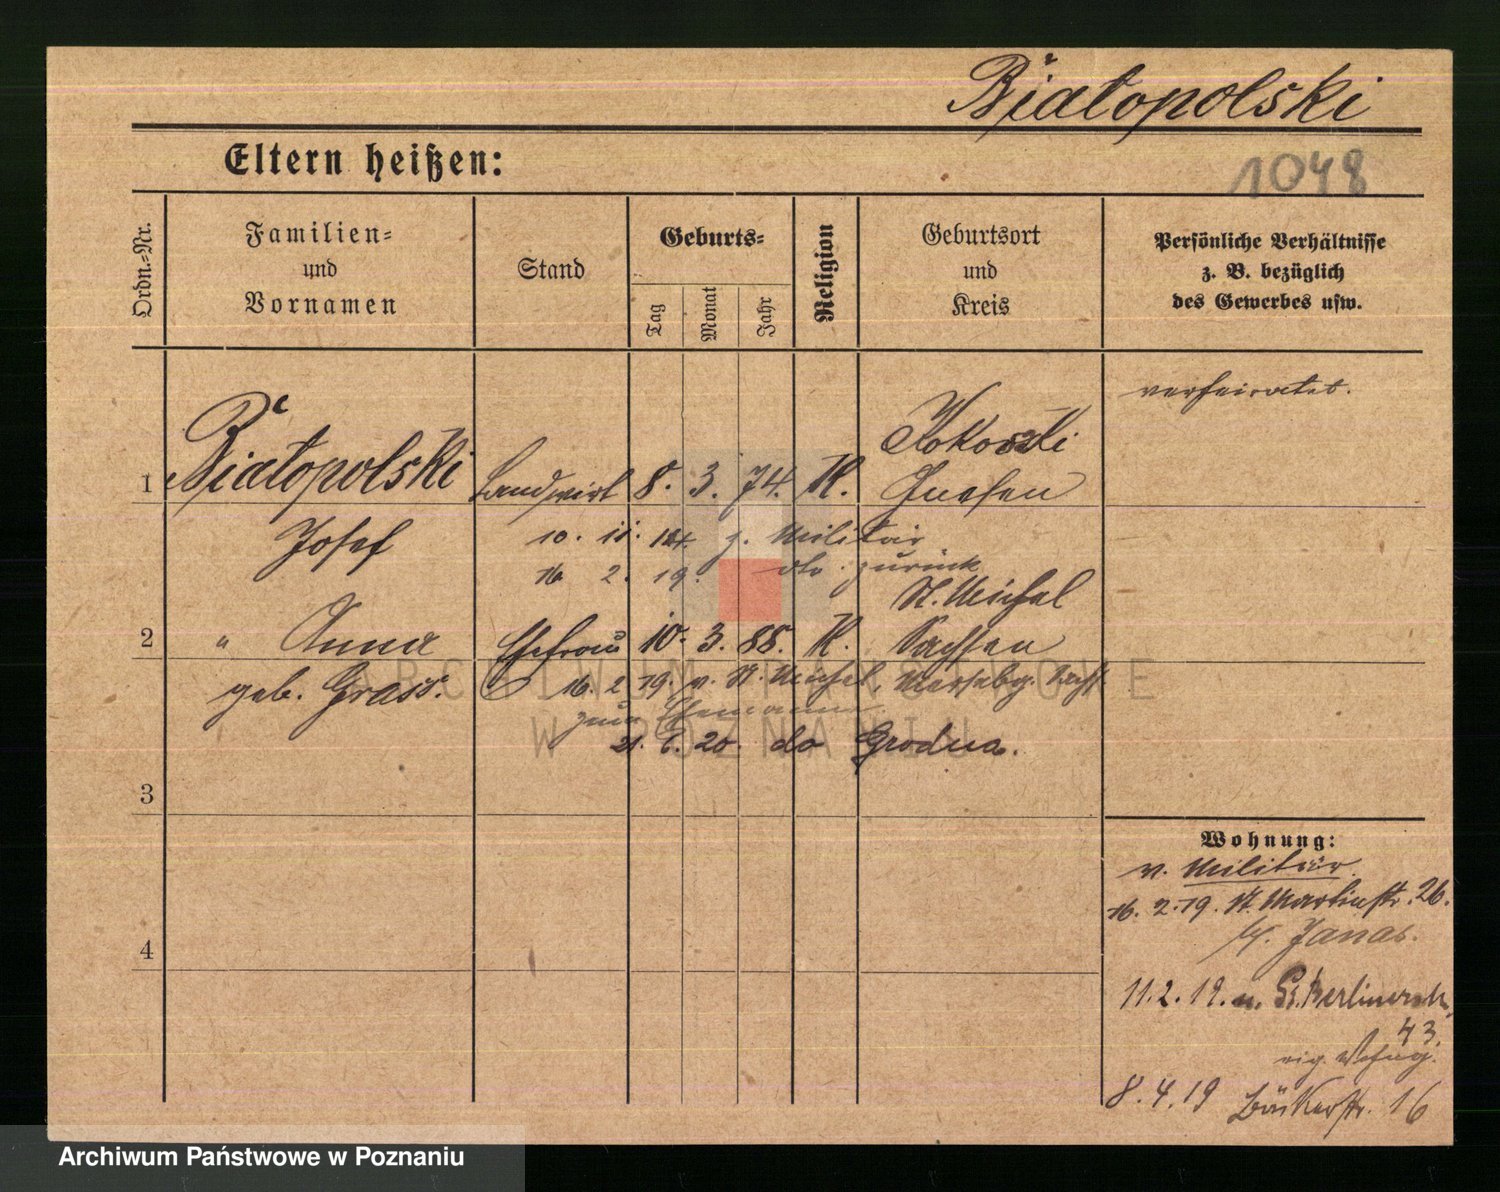 Białopolski
Eltern heißen:
1048
Ordn.-Nr.
Familien-
und
Vornamen
Stand
Geburts-
Tag
Monat
Jahr
Religion
Geburtsort
und
Kreis
Persönliche Verhältnisse
z. B. bezüglich
des Gewerbes usw.
verheiratet.
Kokoszki
1 Białopolski Landwirt 8. 3. 74. K. Gnesen
Josef 10. 11. 14. z. Militär
16 2. 19. dto. zurück
St. Michel
2 " Anna Ehefrau 10. 3. 88. K. Sachsen
geb. Grass. 16. 2 19. v. St. Michel, Mersebg.
zum Ehemann
21. 6. 20. do Grodna.
3
4
Wohnung:
v. Militär
16. 2. 19. St. Martinstr. 26.
b/. Janas.
11. 2. 19. n. Gr. Berlinerstr.
43.
eig. Whng.
8. 4. 19 Bäckerstr. 16
ARCHIWUM PAŃSTWOWE
W POZNANIU
Archiwum Państwowe w Poznaniu